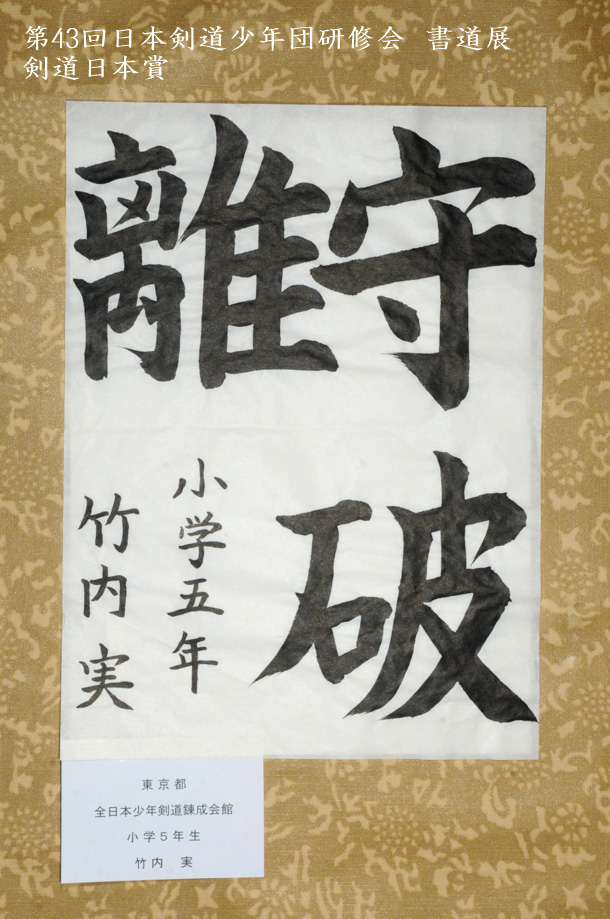 第43回日本剣道少年団研修会 書道展
剣道日本賞
守破
離
小学五年
竹内実
東京都
全日本少年剣道錬成会館
小学5年生
竹内 実